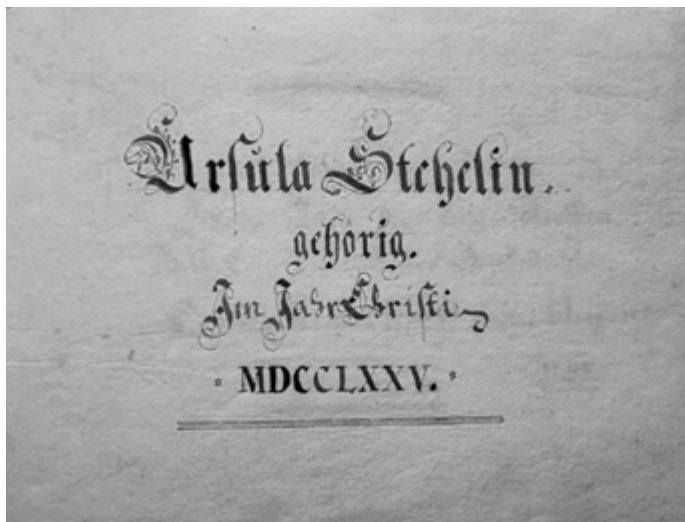 Ursula Stehelin.
gehörig.
Im Jahr Christi
MDCCLXXV.